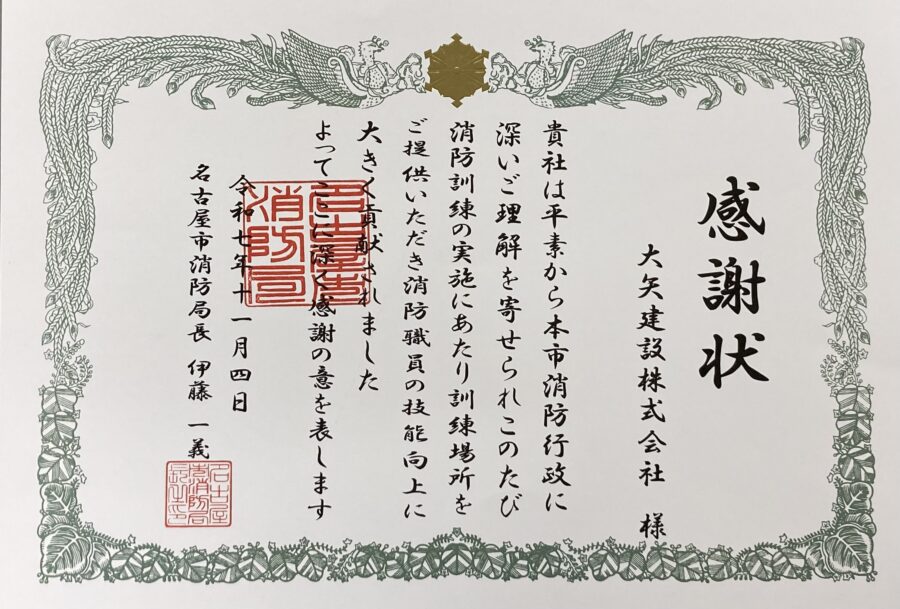 感謝状
大矢建設株式会社 様
貴社は平素から本市消防行政に
深いご理解を寄せられこのたび
消防訓練の実施にあたり訓練場所を
ご提供いただき消防職員の技能向上に
大きく貢献されました
よってここに深く感謝の意を表します
令和七年十一月四日
名古屋市消防局長 伊藤 一義
名古屋市
消防局
名古屋
市消防局
長之印